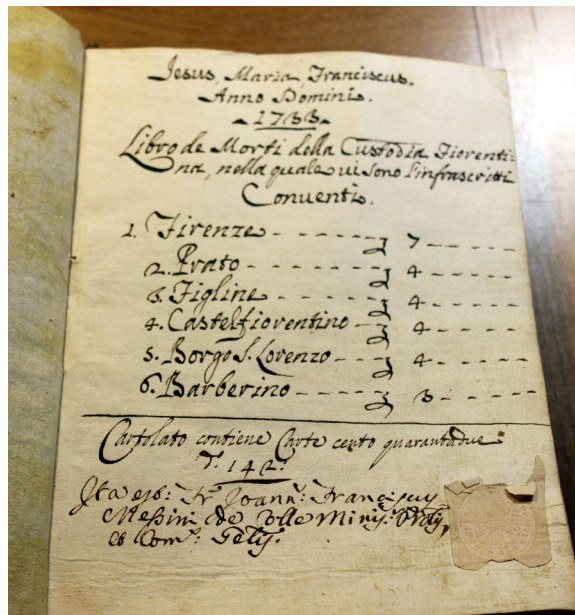 Jesus, Maria, Franciscus.
Anno Domini.
1733
Libro de Morti della Custodia Fiorenti=
na, nella quale vi sono l'infrascritti
Conventi.
1. Firenze - - - - - - 7 - - - - -
2. Prato - - - - - - 4 - - - - -
3. Figline - - - - - - 4 - - - - -
4. Castelfiorentino - - 4 - - - - -
5. Borgo S. Lorenzo - - 4 - - - - -
6. Barberino - - - - - 3 - - - - -
Cartolato contiene Carte cento quarantadue:
142:
Ita est: Fr. Joann: Franciscus
Messini de Colle Minis: Prov: